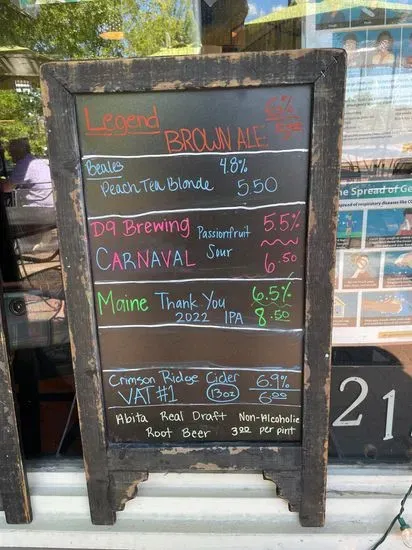 Legend 6%
BROWN ALE
Beales 4.8%
Peach Tea Blonde 5.50
D9 Brewing Passionfruit 5.5%
CARNAVAL Sour 6.50
Maine Thank You 6.5%
2022 IPA 8.50
Crimson Ridge Cider 6.9%
VAT #1 13oz 6.00
Abita Real Draft Non-Alcoholic
Root Beer 3.00 per pint
he Spread of Ge
21